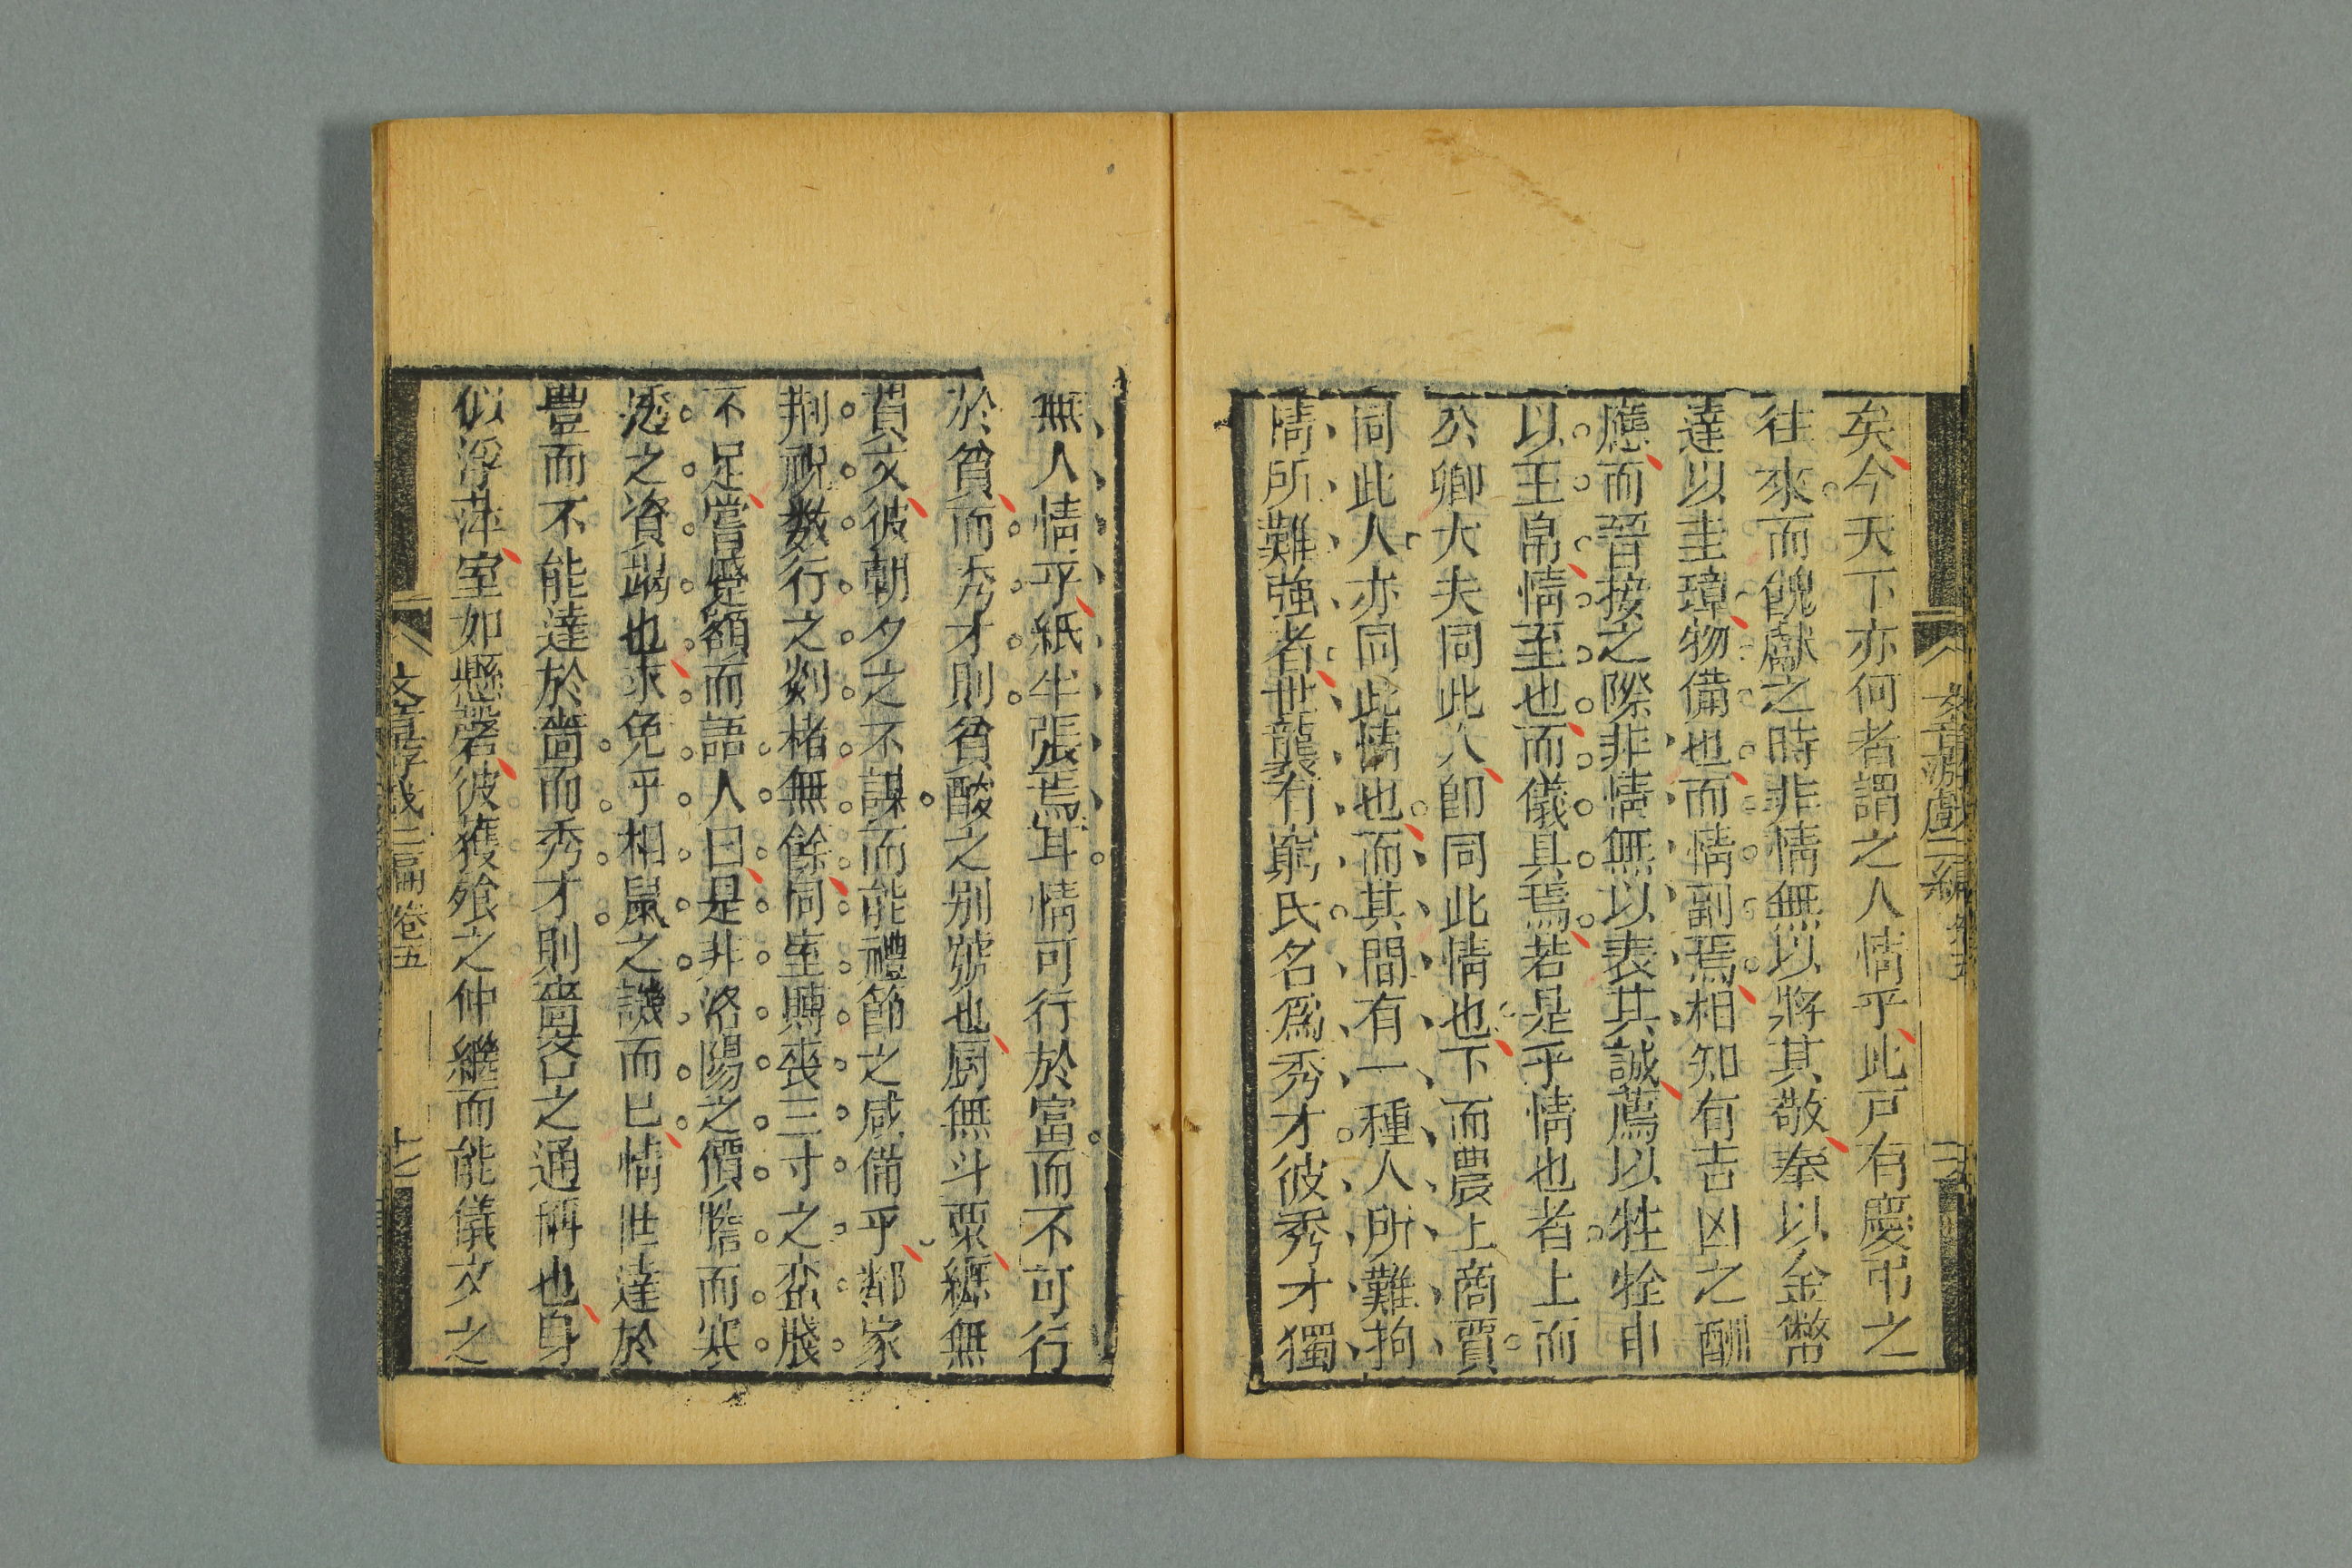 矣今天下亦何者謂之人情乎此戸有慶弔之
往來而餽獻之時非情無以將其敬奉以金幣
達以圭璋物備也而情副焉相知有吉凶之酬
應而晉接之際非情無以表其誠薦以牲牷申
以玉帛情至也而儀具焉若是乎情也者上而
公卿大夫同此人卽同此情也下而農工商賈
同此人亦同此情也而其間有一種人所難拘
情所難強者世襲有窮氏名爲秀才彼秀才獨
無人情乎紙半張焉耳情可行於富而不可行
於貧而秀才則貧酸之别號也厨無斗粟缾無
貫文彼朝夕之不謀而能禮節之咸備乎鄰家
荆祝數行之剡楮無餘同室賻喪三寸之盃醆
不足嘗蹙額而語人曰是非洛陽之價
之資也求免乎相鼠之譏而已情世達於
豊而不能達於嗇而秀才則嗇吝之通稱也身
似浮萍室如懸罄彼獲飱之仲繼而能儀文之
文章游戲二編 卷五
文章游戲二編 卷五 十七